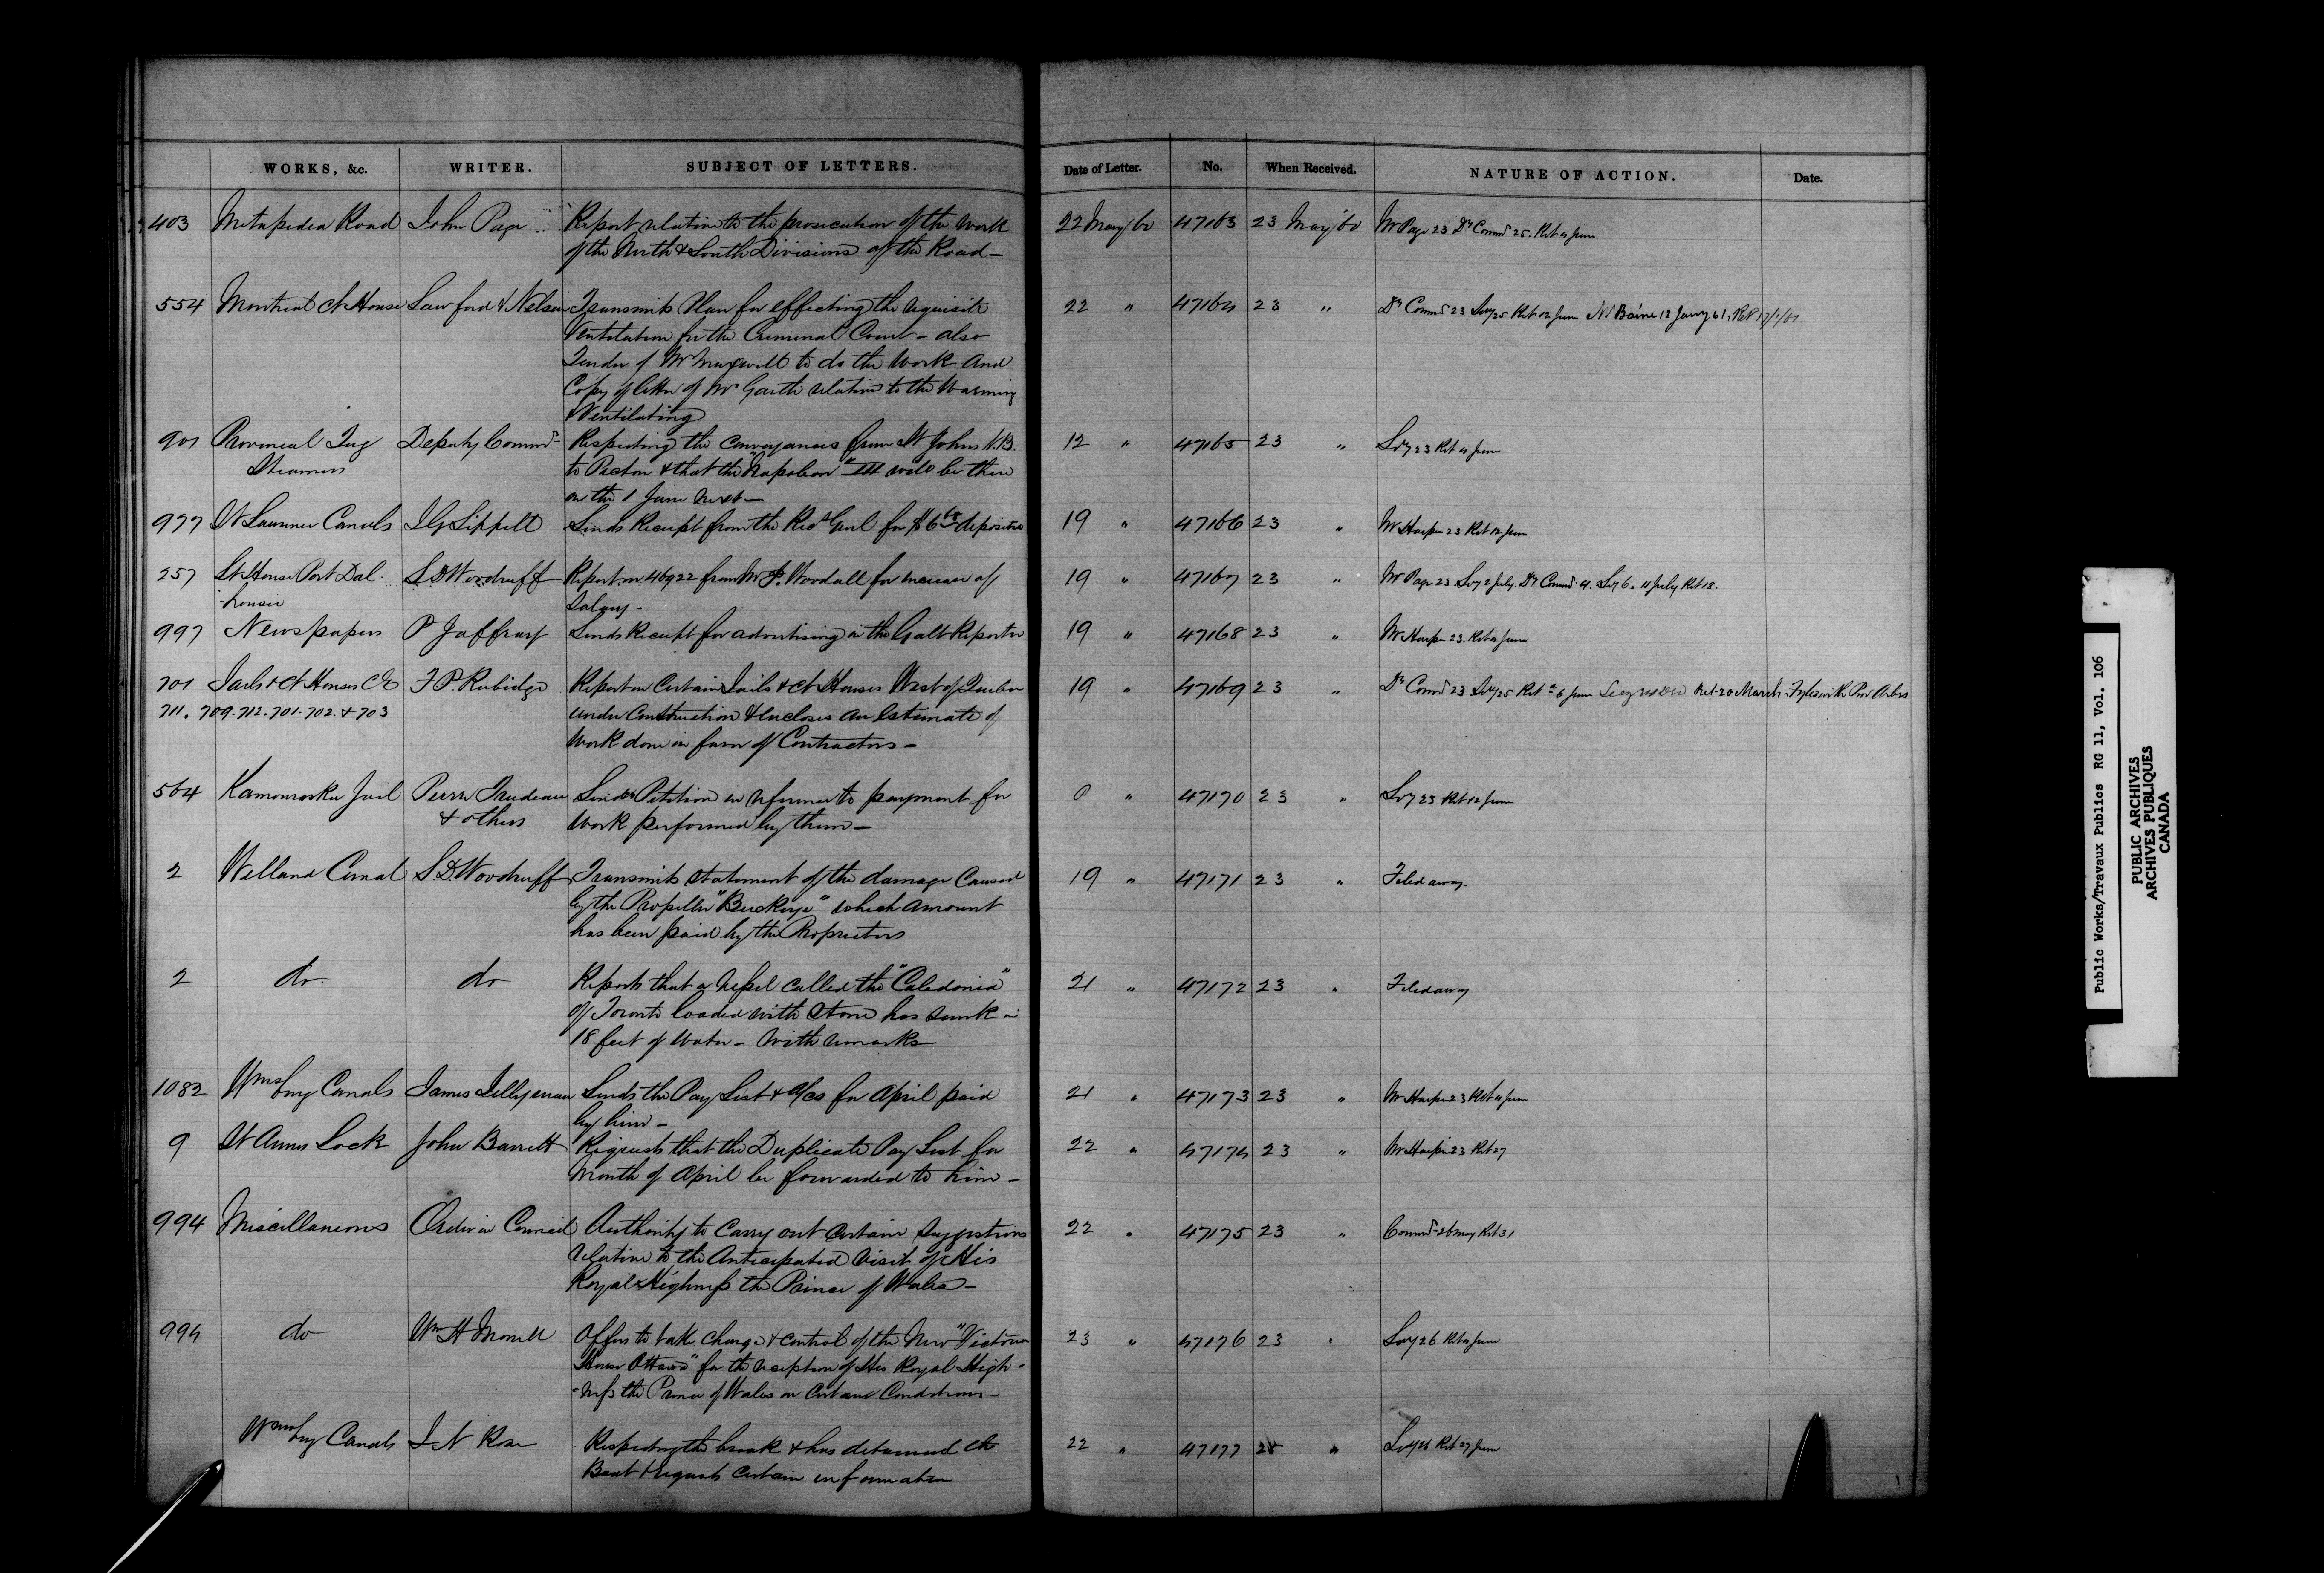 WORKS, &c. WRITER. SUBJECT OF LETTERS. Date of Letter. No. When Received. NATURE OF ACTION. Date.
403 Metapedia Road John Page Report relative to the prosecution of the Work 22 May 60 47163 23 May 60 Mr Page 23 Dy Commr 25. Ret 11 June
of the North & South Divisions of the Road —
554 Montreal Ct House Lawford & Nelson Transmits Plan for effecting the requisite 22 " 47164 23 " Dy Commr 23 Secy 25 Ret 12 June Mr Baine 12 Jany 61, Ret
Ventilation for the Criminal Court — also
Tender of Mr to do the Work and
Copy of letter of Mr Garth relative to the Warming
& Ventilating
901 Provincial Tug Deputy Commr Respecting the conveyances from St Johns N.B. 12 " 47165 23 " Secy 23 Ret 11 June
Steamers to Pictou & that the "Napoleon" III will be there
on the 1 June next —
977 St Lawrence Canals J G Sippell Sends Receipt from the Recr Genl for deposited 19 " 47166 23 " Mr Harper 23 Ret 12 June
257 Lt House Port Dal- S D Woodruff Report on 46922 from Mr J. Woodall for increase of 19 " 47167 23 " Mr Page 23 Secy 2 July. Dy Commr 4. Secy 6. 11 July Ret 18.
-housie Salary.
997 Newspapers P Jaffray Sends Receipt for advertising in the Galt Reporter 19 " 47168 23 " Mr Harper 23. Ret 11 June
701 Jails & Ct Houses CE F P. Rubidge Report on Certain Jails & Ct Houses West of Quebec 19 " 47169 23 " Dy Commr 23 Secy 25 Ret 6 June Secy Ret. 20 March.
711. 709. 712. 701. 702. & 703 under Construction & Encloses an Estimate of
Work done in favor of Contractors —
564 Kamouraska Jail Pierre Trudeau Sends Petition in reference to payment for " 47170 23 " Secy 23 Ret 12 June
& others Work performed by them —
2 Welland Canal S D Woodruff Transmits statement of the damage caused 19 " 47171 23 " Filed away.
by the Propeller "Buckeye" which amount
has been paid by the Proprietors
2 do do Reports that a vessel called the "Caledonia" 21 " 47172 23 " Filed away
of Toronto loaded with Stone has sunk in
18 feet of Water — With remarks
1082 Wmsburg Canals James Sends the Pay List & a/cs for April paid 21 " 47173 23 " Mr Harper 23 Ret 11 June
by him —
9 St Anns Lock John Barrett Requests that the Duplicate Pay List for 22 " 47174 23 " Mr Harper 23 Ret 27
Month of April be forwarded to him —
994 Miscellaneous Order in Council Authority to carry out certain Suggestions 22 " 47175 23 " Commr 26 May Ret 31
relative to the Anticipated visit of His
Royal Highness the Prince of Wales —
994 do Wm H Offers to take charge & control of the New "Victoria 23 " 47176 23 " Secy 26 Ret 11 June
House Ottawa" for the reception of His Royal High-
-ness the Prince of Wales on Certain Conditions —
Wmsburg Canals J N Rose Respecting the break & has detained the 22 " 47177 " Ret 27 June
Boat & requests certain information
Public Works/Travaux Publics RG 11, Vol. 106
PUBLIC ARCHIVES
ARCHIVES PUBLIQUES
CANADA